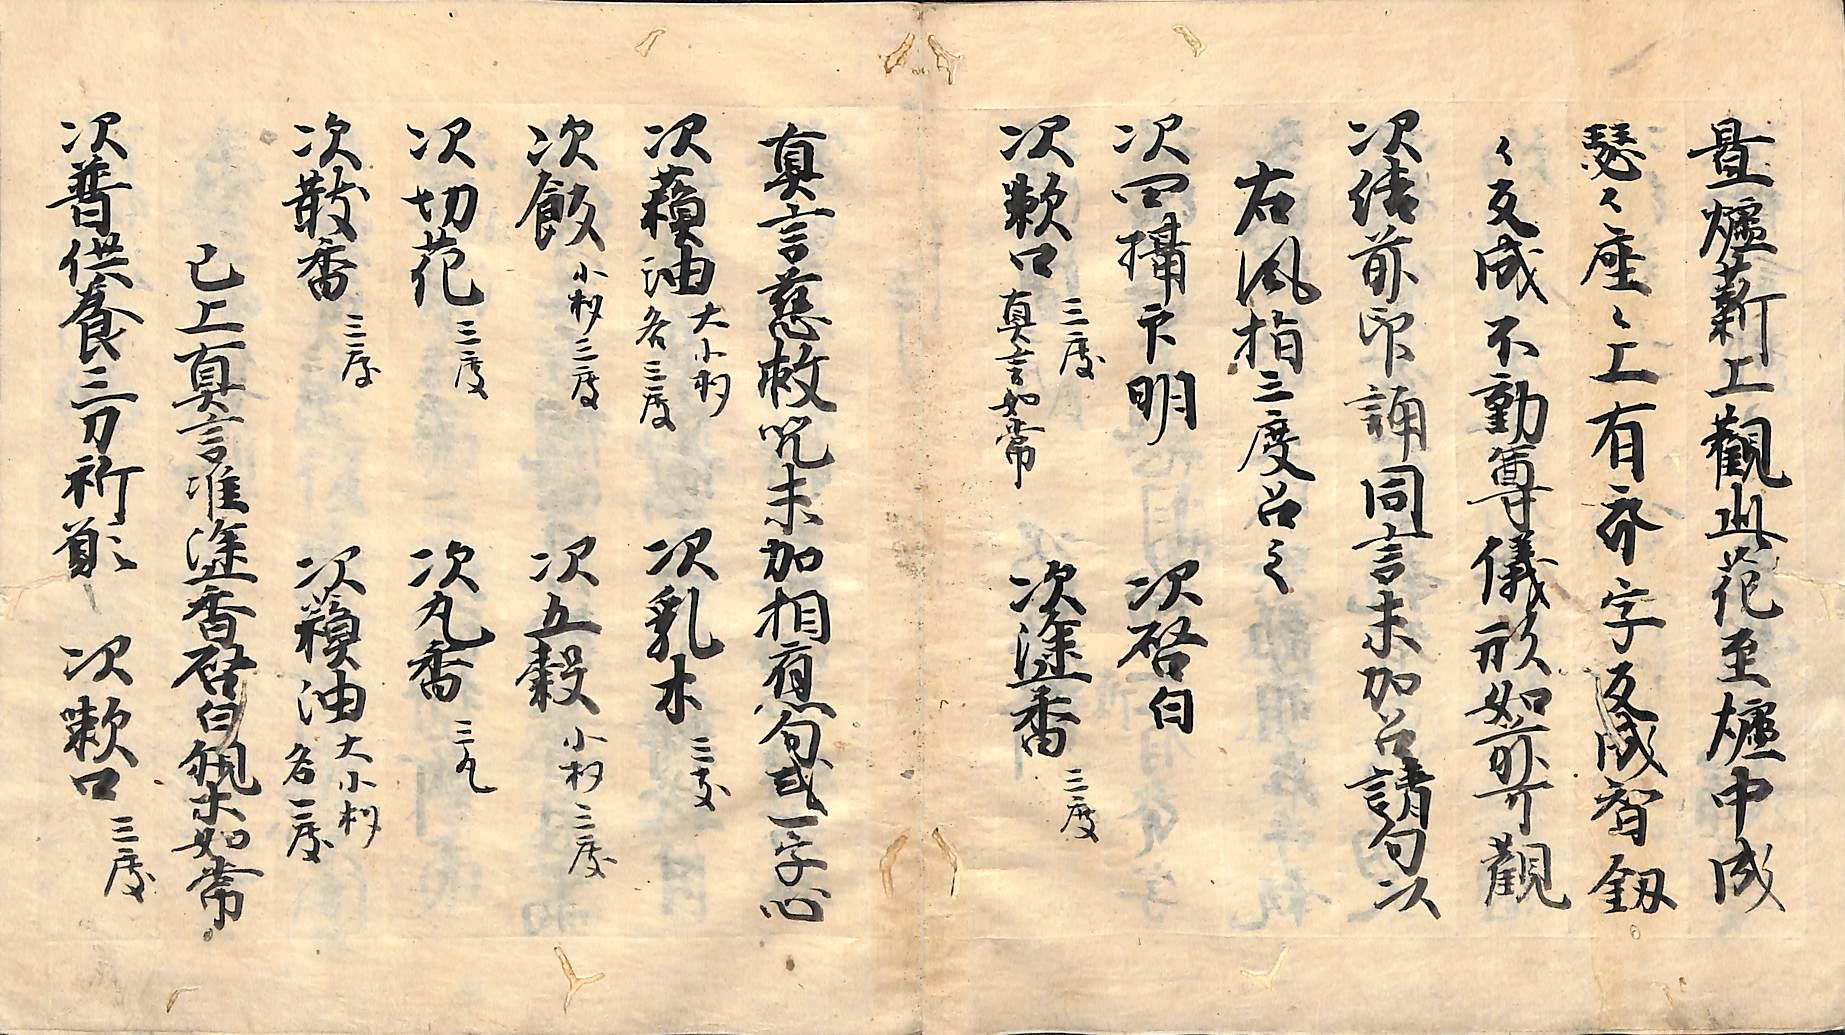 置爐薪上觀此花至爐中成
瑟〻座〻上有𤚥字反成智釼
〻反成不動尊儀形如前可觀
次結前印誦同言末加召請句以
右風指三度召之
次四攝印明　次啓白
次漱口三度真言如常　次塗香三度
真言慈救呪末加相應句或一字心
次蘓油大小杓各三度　次乳木三支
次飯小杓三度　次五穀小杓三度
次切花三度　次丸香三丸
次散香三度　次蘓油大小杓各一度
已上真言准塗香啓白觀末如常
次普供養三力祈願〻　次漱口三度